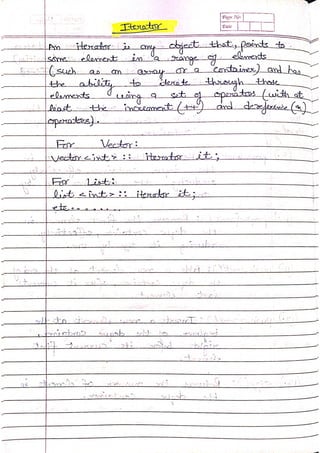 Iterator
Page No:
Date
An iterator is any object that, points to
some element in a range of elements
(such as an array or a container) and has
the ability to iterate through those
elements using a set of operators (with at
least the increment (++) and dereference (*)
operators).
For Vector:
Vector<int> :: iterator it;
For List:
list <int> :: iterator it;
etc........